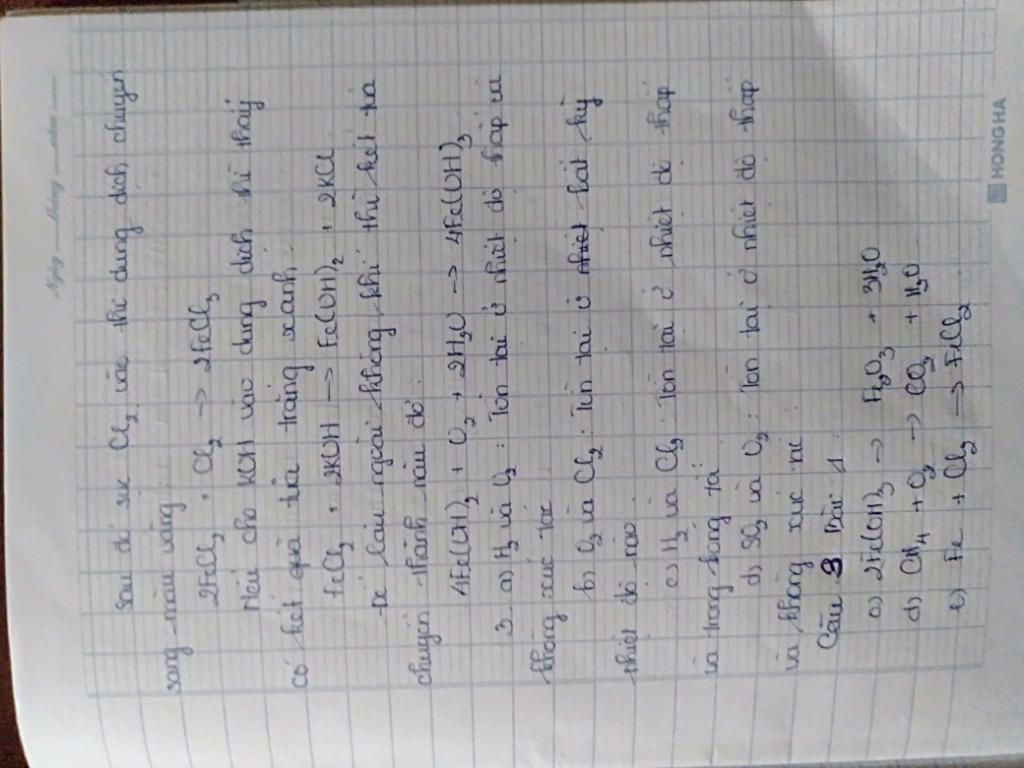 Ngày tháng năm
sau đó sục Cl2 vào thì dung dịch chuyển
sang màu vàng
2FeCl2 + Cl2 → 2FeCl3
Nếu cho KOH vào dung dịch thì thấy
có kết quả tủa trắng xanh.
FeCl2 + 2KOH → Fe(OH)2 + 2KCl
Để lâu ngoài không khí thì kết tủa
chuyển thành nâu đỏ.
4Fe(OH)2 + O2 + 2H2O → 4Fe(OH)3
3. a) H2 và O2 : Tồn tại ở nhiệt độ thấp và
không xúc tác
b) O2 và Cl2 : Tồn tại ở nhiệt bất kỳ
nhiệt độ nào.
c) H2 và Cl2 : Tồn tại ở nhiệt độ thấp
và trong bóng tối
d) SO2 và O2 : Tồn tại ở nhiệt độ thấp
và không xúc tác
Câu 3 Bài 1
a) 2Fe(OH)3 → Fe2O3 + 3H2O
d) CH4 + O2 → CO2 + H2O
e) Fe + Cl2 → FeCl2
HONG HA